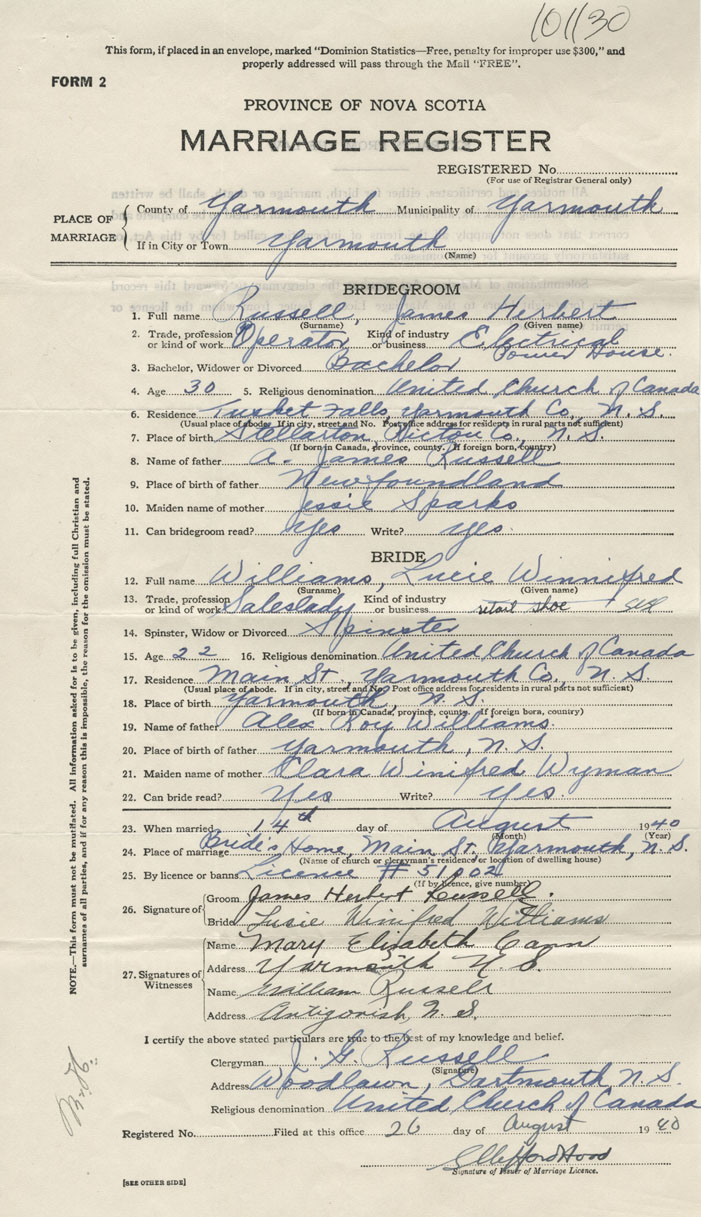 101130
This form, if placed in an envelope, marked "Dominion Statistics—Free, penalty for improper use $300," and
properly addressed will pass through the Mail "FREE".
FORM 2
PROVINCE OF NOVA SCOTIA
MARRIAGE REGISTER
REGISTERED No.
(For use of Registrar General only)
PLACE OF MARRIAGE
County of Yarmouth Municipality of Yarmouth
If in City or Town Yarmouth
(Name)
BRIDEGROOM
1. Full name Russell, James Herbert
(Surname) (Given name)
2. Trade, profession or kind of work Operator Kind of industry or business Electrical Power House.
3. Bachelor, Widower or Divorced Bachelor
4. Age 30 5. Religious denomination United Church of Canada
6. Residence Tusket Falls, Yarmouth Co., N. S.
(Usual place of abode. If in city, street and No. Post office address for residents in rural parts not sufficient)
7. Place of birth Stellarton, Pictou Co., N. S.
(If born in Canada, province, county. If foreign born, country)
8. Name of father A. James Russell
9. Place of birth of father Newfoundland
10. Maiden name of mother Jessie Sparks
11. Can bridegroom read? Yes Write? Yes.
BRIDE
12. Full name Williams, Lucie Winnifred
(Surname) (Given name)
13. Trade, profession or kind of work Saleslady Kind of industry or business retail shoe
14. Spinster, Widow or Divorced Spinster
15. Age 22 16. Religious denomination United Church of Canada
17. Residence Main St., Yarmouth Co., N. S.
(Usual place of abode. If in city, street and No. Post office address for residents in rural parts not sufficient)
18. Place of birth Yarmouth, N. S.
(If born in Canada, province, county. If foreign born, country)
19. Name of father Alex Roy Williams.
20. Place of birth of father Yarmouth, N. S.
21. Maiden name of mother Clara Winifred Wyman
22. Can bride read? Yes Write? Yes.
23. When married 14th day of August 1940
(Month) (Year)
24. Place of marriage Bride's Home, Main St. Yarmouth, N. S.
(Name of church or clergyman's residence or location of dwelling house)
25. By licence or banns Licence # 51902
(If by licence, give number)
26. Signature of
Groom James Herbert Russell.
Bride Lucie Winifred Williams
27. Signatures of Witnesses
Name Mary Elizabeth Cann
Address Yarmouth N. S.
Name William Russell
Address Antigonish, N. S.
I certify the above stated particulars are true to the best of my knowledge and belief.
Clergyman J. G. Russell
(Signature)
Address Woodlawn, Dartmouth N. S.
Religious denomination United Church of Canada
Registered No. Filed at this office 26 day of August 1940
Signature of Issuer of Marriage Licence.
[SEE OTHER SIDE]
NOTE.—This form must not be mutilated. All information asked for is to be given, including full Christian and
surnames of all parties, and if for any reason this is impossible, the reason for the omission must be stated.